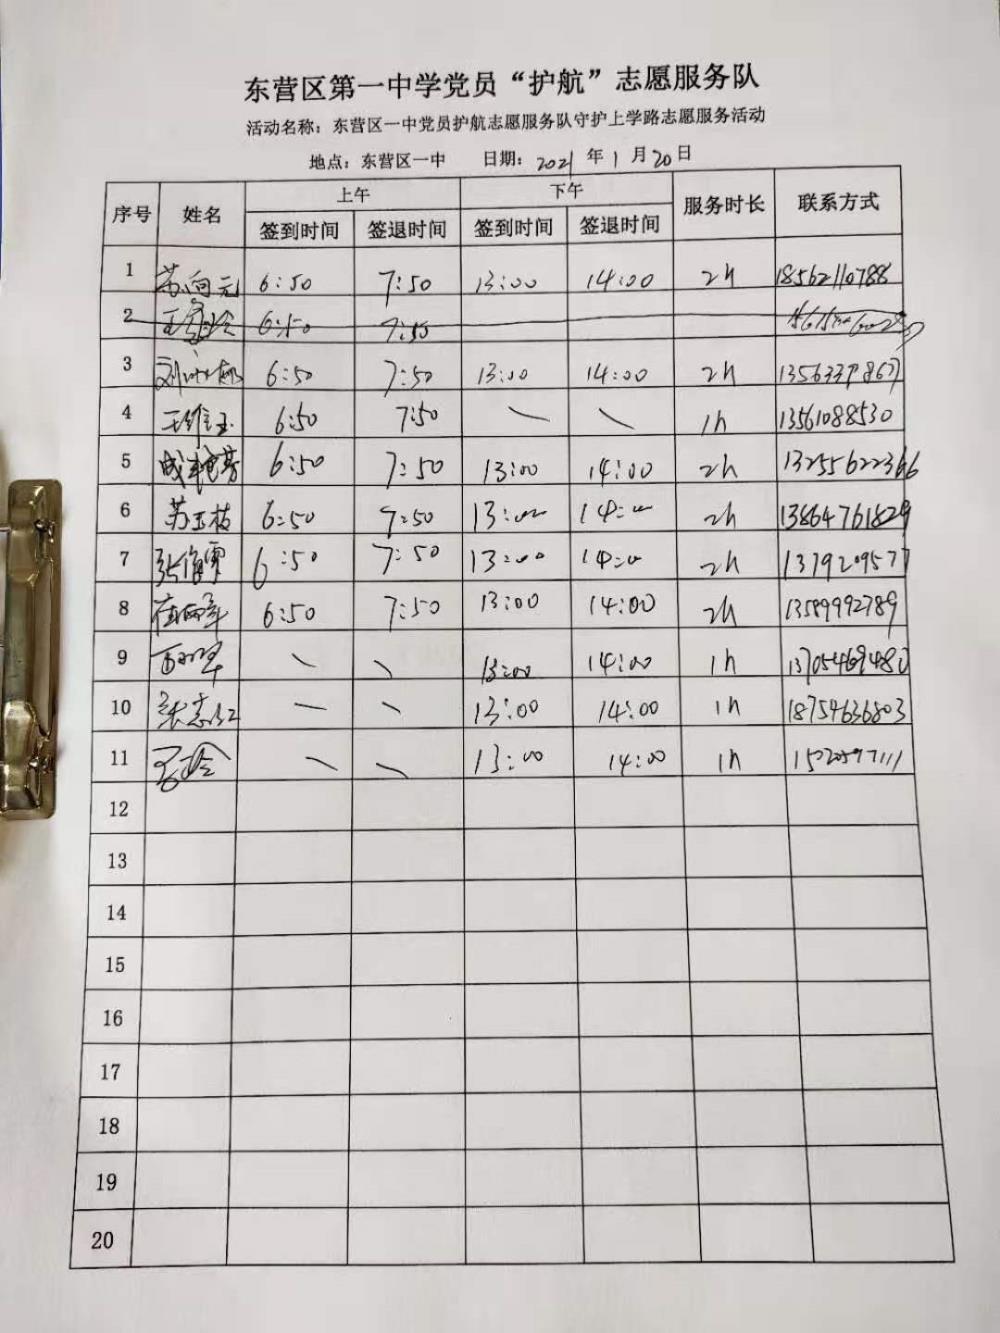 东营区第一中学党员“护航”志愿服务队
活动名称：东营区一中党员护航志愿服务队守护上学路志愿服务活动
地点：东营区一中 日期：2021年1月20日
序号 姓名 上午 下午 服务时长 联系方式
签到时间 签退时间 签到时间 签退时间
1 苏向元 6:50 7:50 13:00 14:00 2h 18562110788
2 6:50 7:50
3 6:50 7:50 13:00 14:00 2h
4 王维玉 6:50 7:50 — — 1h 13561088530
5 6:50 7:50 13:00 14:00 2h 13255622366
6 苏玉枝 6:50 7:50 13:00 14:00 2h 13864761829
7 6:50 7:50 13:00 14:00 2h 1379209577
8 6:50 7:50 13:00 14:00 2h 13589992789
9 — — 13:00 14:00 1h 13705469480
10 张志红 — — 13:00 14:00 1h 18754636803
11 — — 13:00 14:00 1h 1520597111
12
13
14
15
16
17
18
19
20